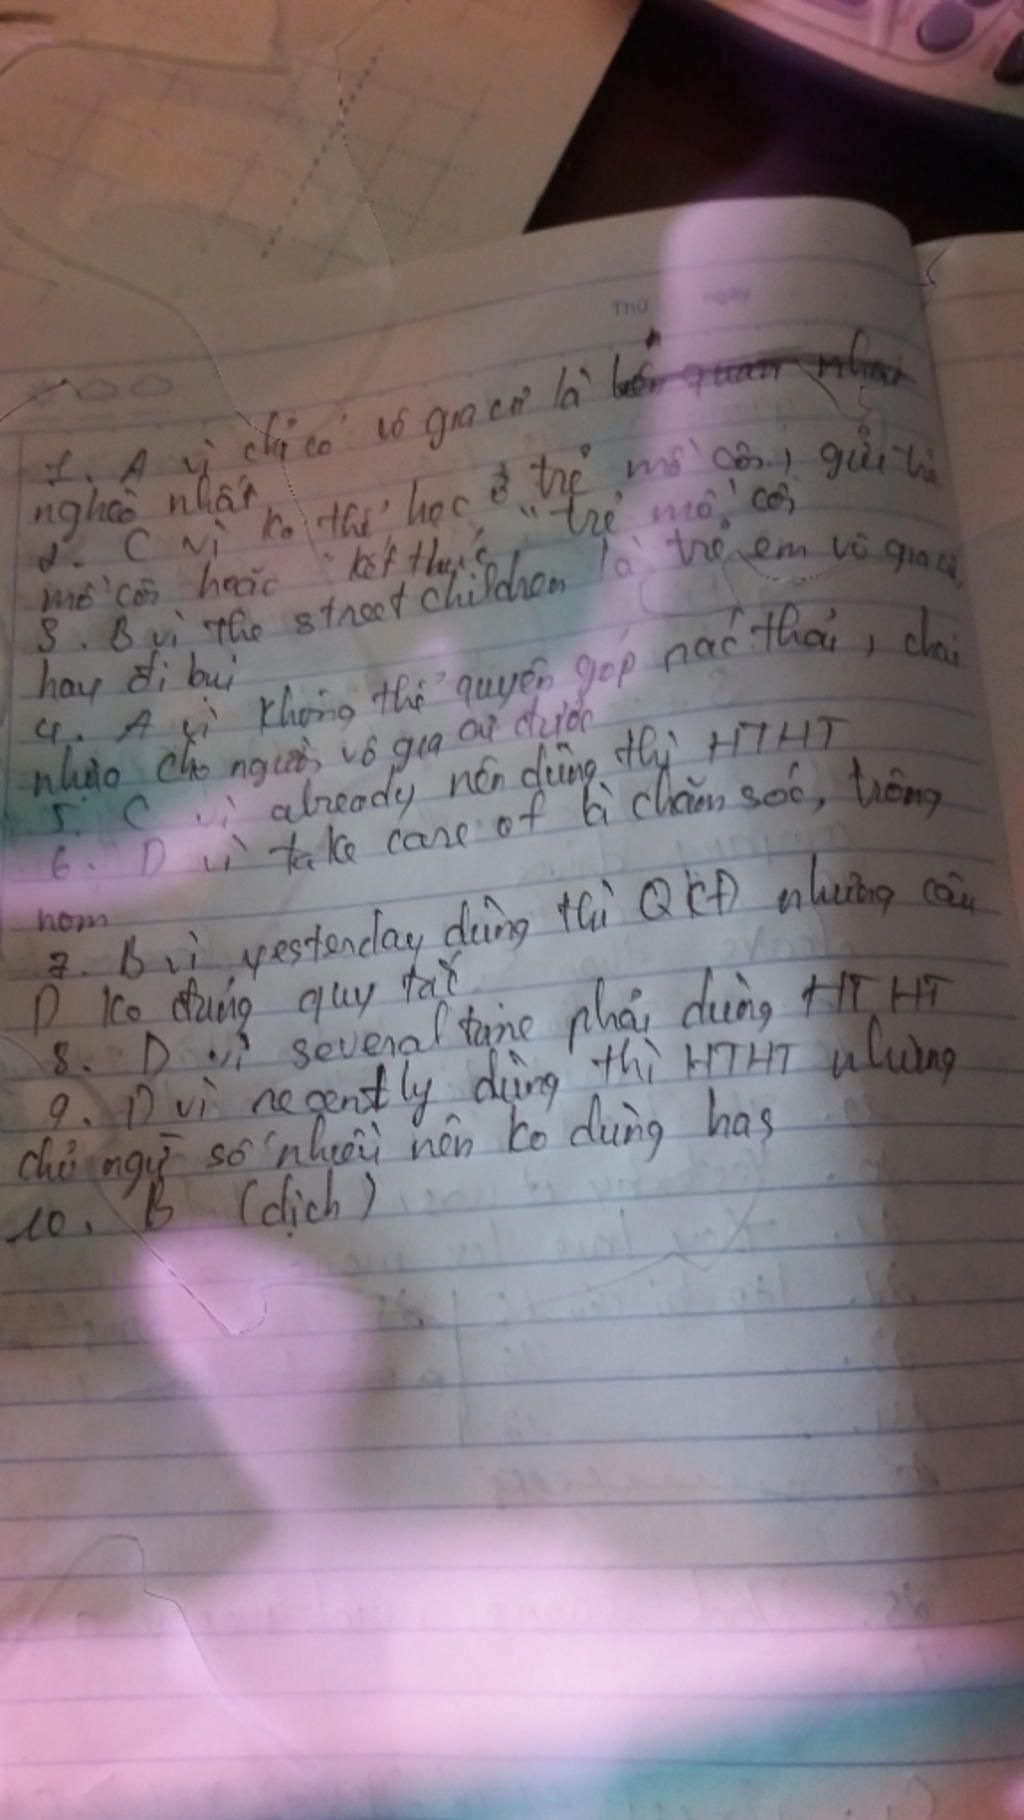 Thứ ngày
1. A vì chỉ có vô gia cư là
nghèo nhất
2. C vì ko thể học ở trẻ mồ côi, gửi trẻ
mồ côi hoặc "kết thúc" trẻ mồ côi
3. B vì the street children là trẻ em vô gia cư,
hay đi bụi
4. A vì không thể quyên góp nác thải, chai
nhựa cho người vô gia cư được
5. C vì already nên dùng thì HTHT
6. D vì take care of là chăm sóc, trông
nom
7. B vì yesterday dùng thì QKĐ nhưng câu
D ko đúng quy tắc
8. D vì several time phải dùng HTHT
9. D vì recently dùng thì HTHT nhưng
chủ ngữ số nhiều nên ko dùng has
10. B (dịch)